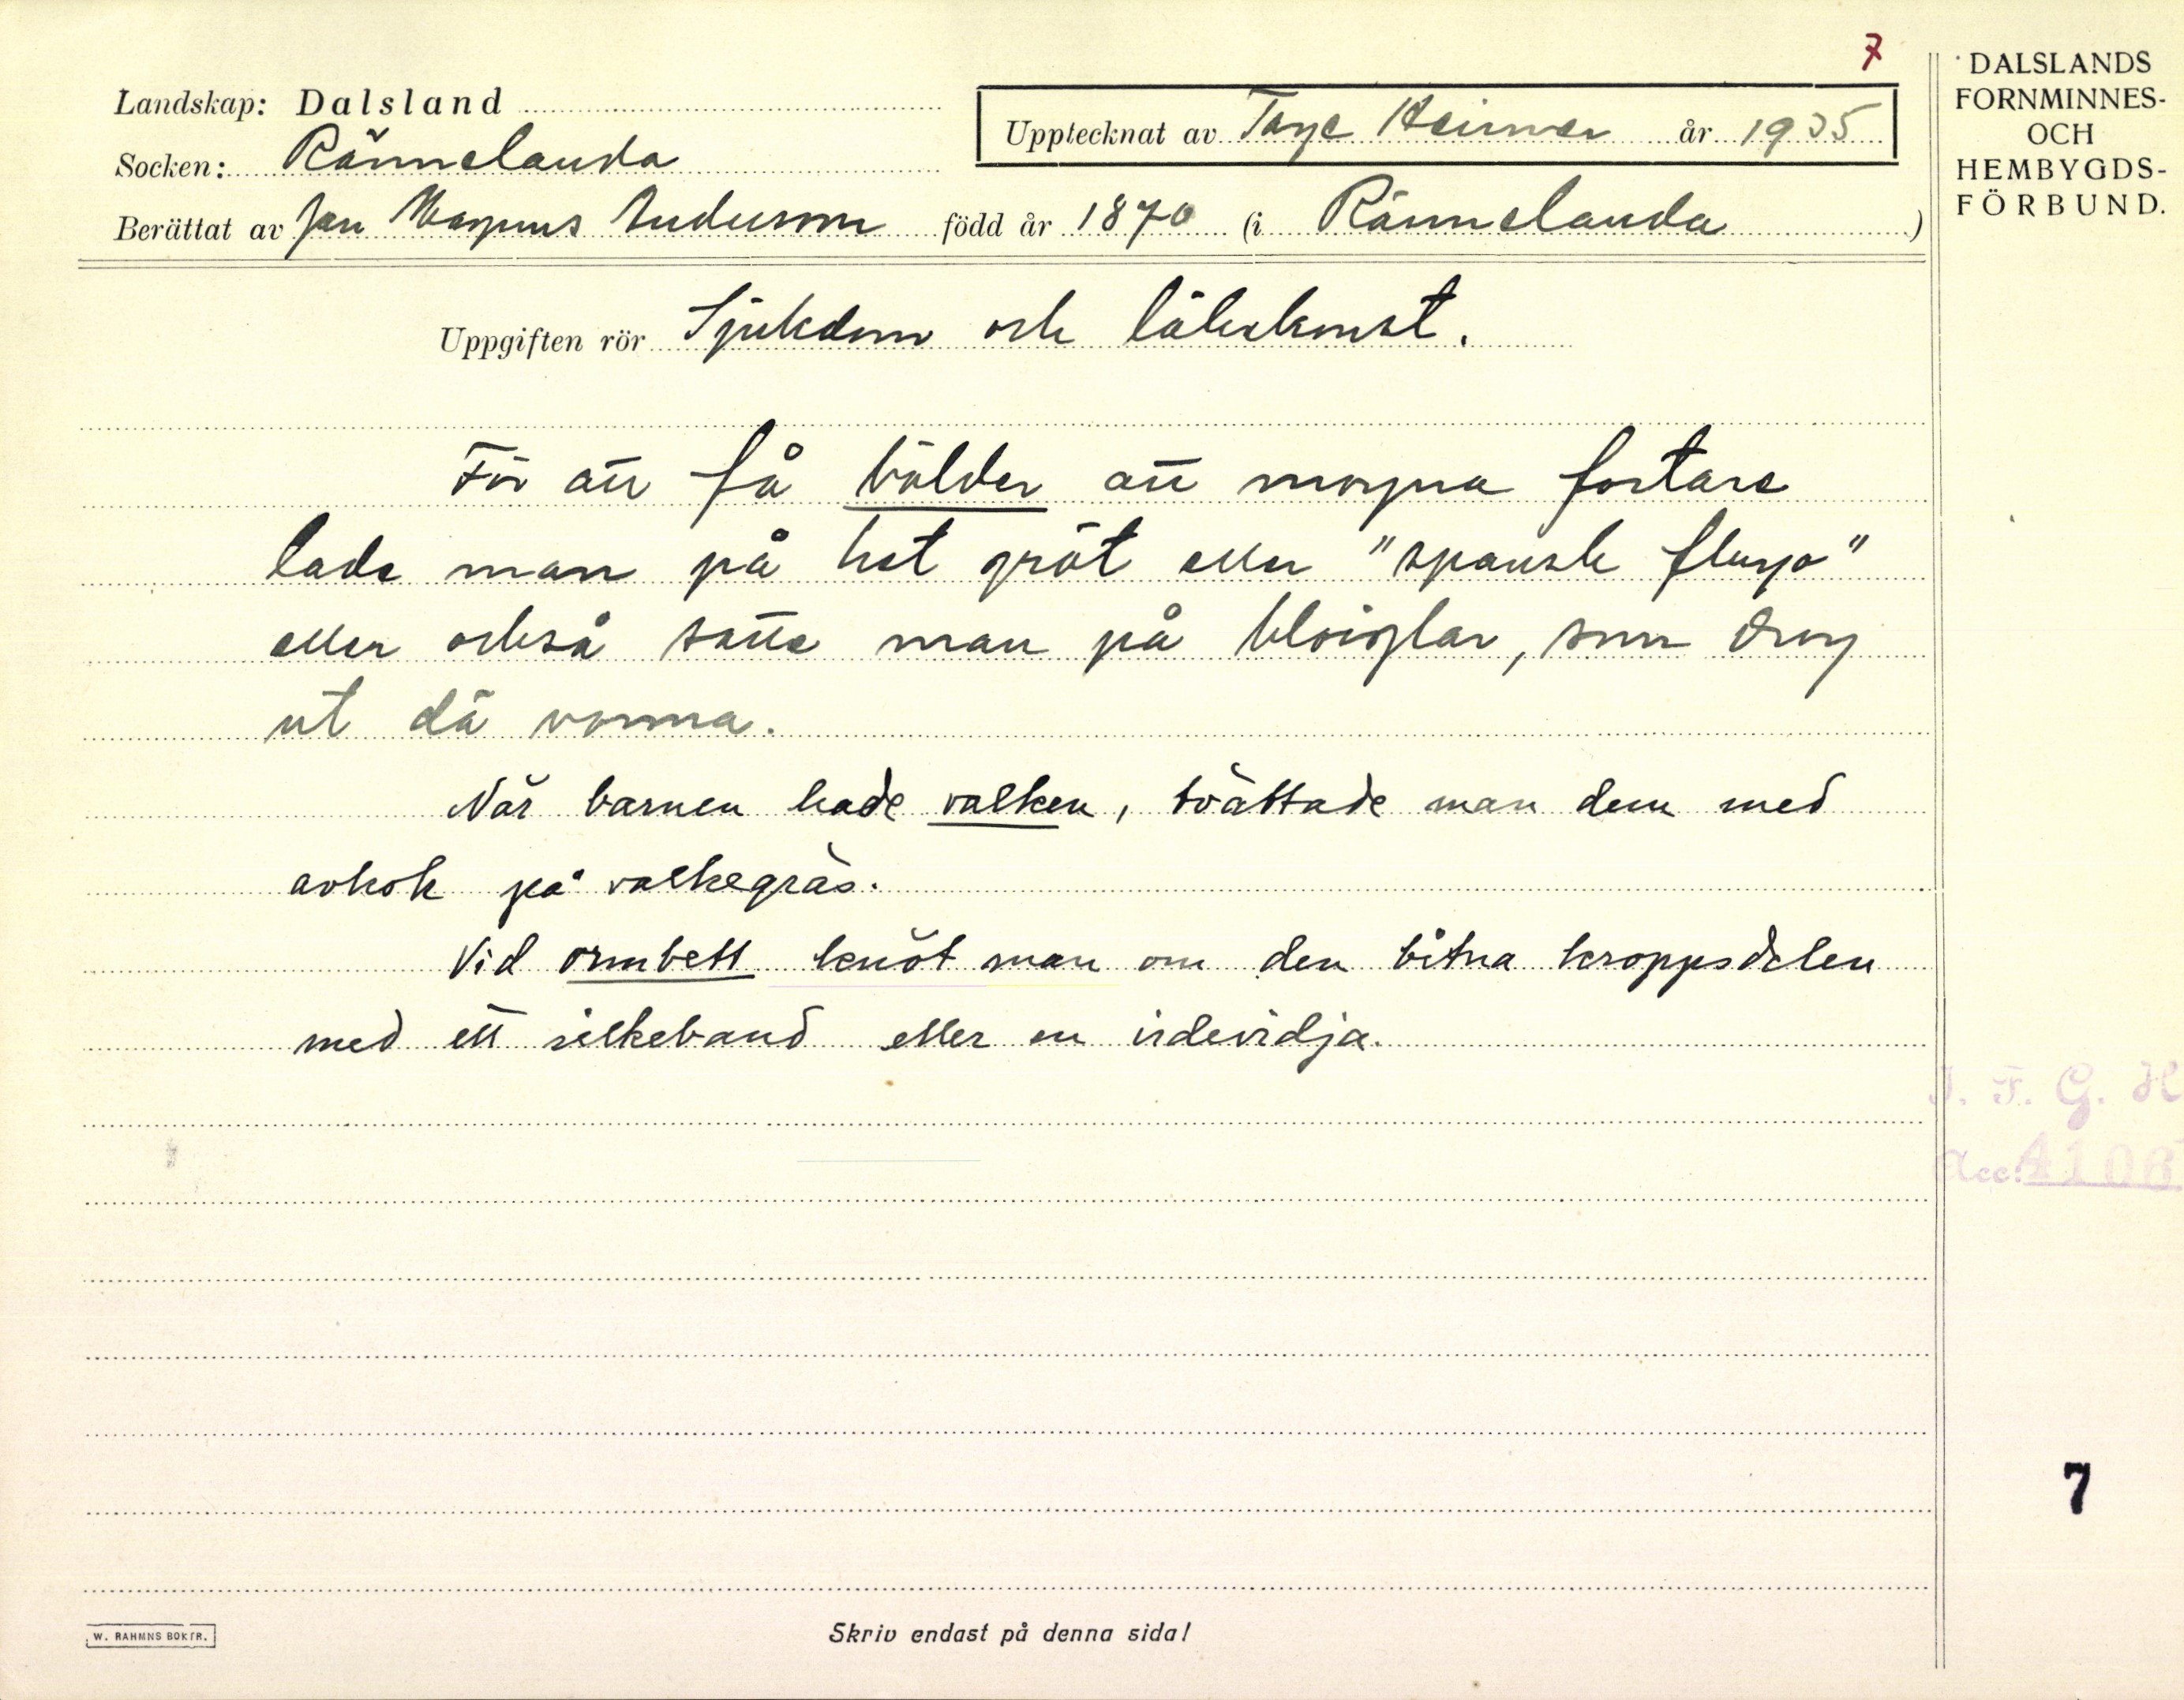 7
Landskap: Dalsland
Upptecknat av Tage Heimer år 1935
Socken: Rännelanda
Berättat av Jan Magnus Andersson född år 1870 (i Rännelanda )
DALSLANDS
FORNMINNES-
OCH
HEMBYGDS-
FÖRBUND.
Uppgiften rör Sjukdom och läkekonst.
För att få bölder att mogna fortare
lade man på het gröt eller "spansk fluga"
eller också satte man på bloiglar, som drog
ut dä vonna.
När barnen hade valken, tvättade man dem med
avkok på valkegräs.
Vid ormbett knöt man om den bitna kroppsdelen
med ett silkeband eller en videvidja.
I. F. G. H
Acc. 4106
7
W. RAHMNS BOKTR.
Skriv endast på denna sida!